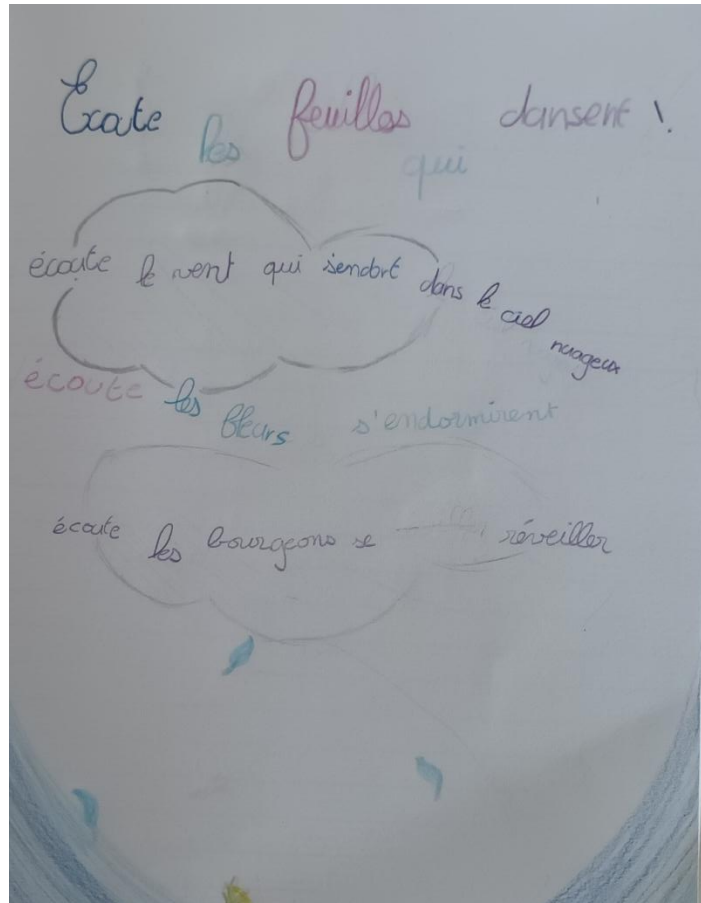 Ecoute les feuilles qui dansent !
écoute le vent qui s'endort dans le ciel nuageux
écoute les fleurs s'endormirent
écoute les bourgeons se réveiller